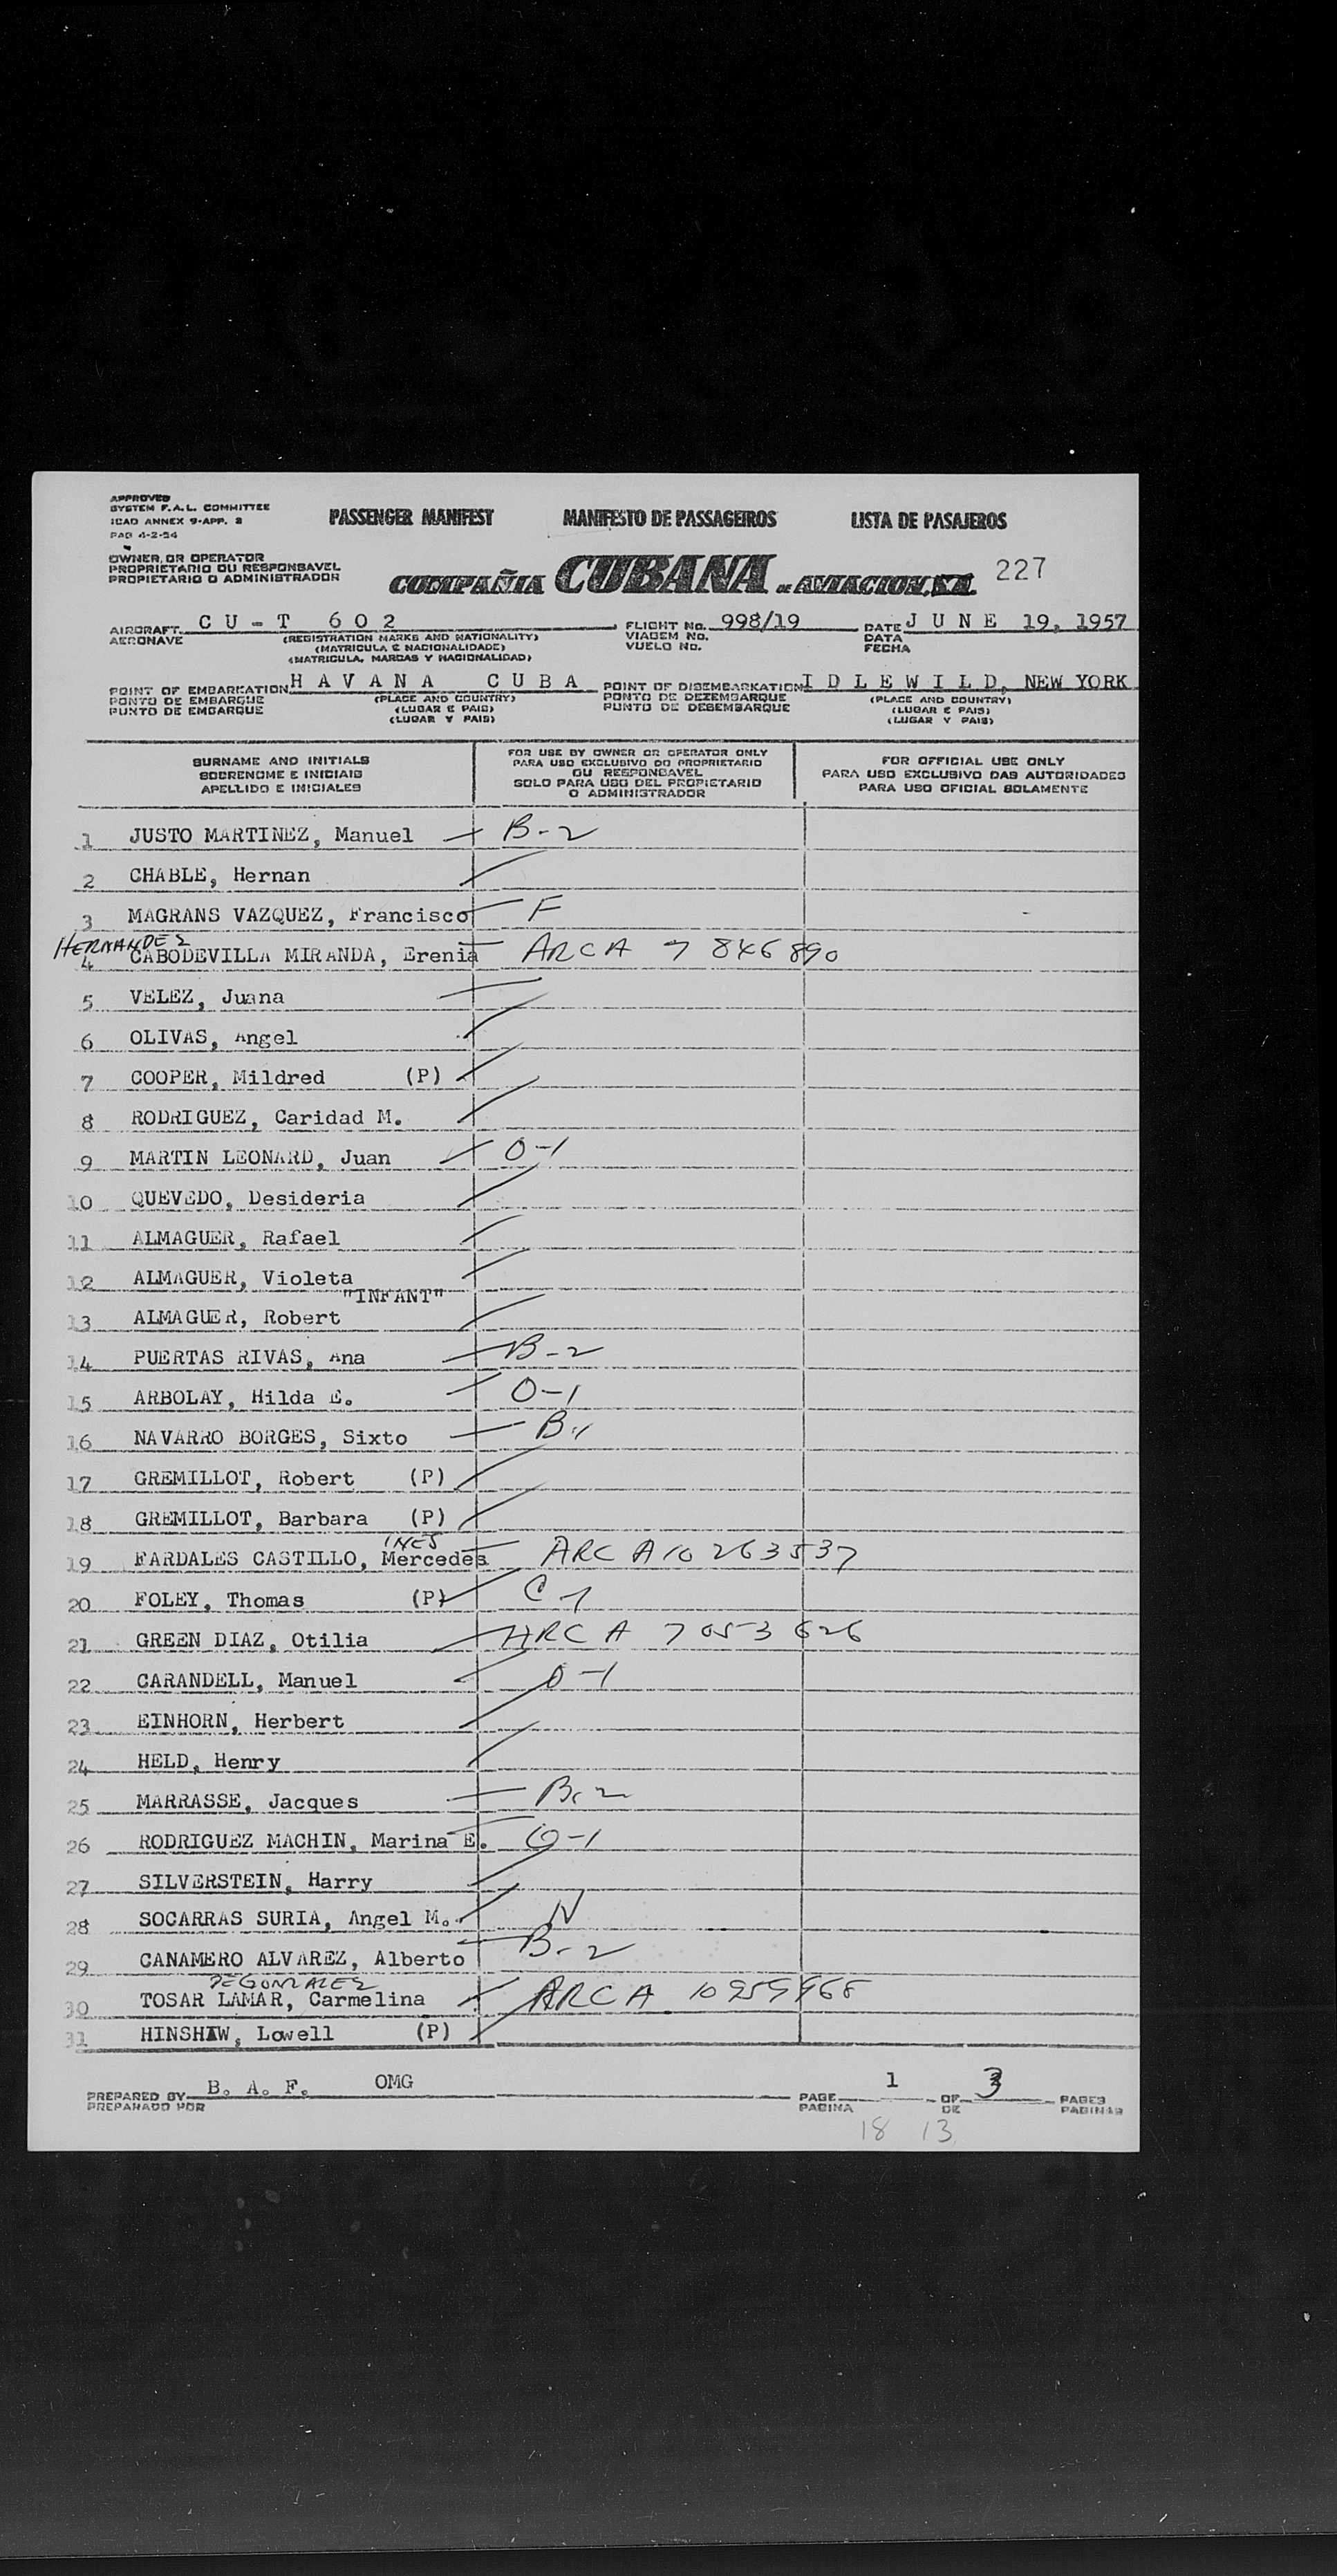 APPROVED
SYSTEM F.A.L. COMMITTEE
ICAO ANNEX 9-APP. 2
PAD 4-2-54
PASSENGER MANIFEST MANIFESTO DE PASSAGEIROS LISTA DE PASAJEROS
OWNER, OR OPERATOR
PROPRIETARIO OU RESPONSAVEL
PROPIETARIO O ADMINISTRADOR
COMPAÑIA CUBANA DE AVIACION, S.A. 227
AIRCRAFT CU-T 602 FLIGHT No. 998/19 DATE JUNE 19, 1957
AERONAVE (REGISTRATION MARKS AND NATIONALITY) VIAGEM No. DATA
(MATRICULA E NACIONALIDADE) VUELO No. FECHA
(MATRICULA, MARCAS Y NACIONALIDAD)
POINT OF EMBARKATION HAVANA CUBA POINT OF DISEMBARKATION IDLEWILD, NEW YORK
PONTO DE EMBARQUE (PLACE AND COUNTRY) PONTO DE DEZEMBARQUE (PLACE AND COUNTRY)
PUNTO DE EMBARQUE (LUGAR E PAIS) PUNTO DE DESEMBARQUE (LUGAR E PAIS)
(LUGAR Y PAIS) (LUGAR Y PAIS)
SURNAME AND INITIALS
SOBRENOME E INICIAIS
APELLIDO E INICIALES
FOR USE BY OWNER OR OPERATOR ONLY
PARA USO EXCLUSIVO DO PROPRIETARIO
OU RESPONSAVEL
SOLO PARA USO DEL PROPIETARIO
O ADMINISTRADOR
FOR OFFICIAL USE ONLY
PARA USO EXCLUSIVO DAS AUTORIDADES
PARA USO OFICIAL SOLAMENTE
1 JUSTO MARTINEZ, Manuel B-2
2 CHABLE, Hernan
3 MAGRANS VAZQUEZ, Francisco F
HERNANDEZ
4 CABODEVILLA MIRANDA, Erenia ARC A 7 846 890
5 VELEZ, Juana
6 OLIVAS, Angel
7 COOPER, Mildred (P)
8 RODRIGUEZ, Caridad M.
9 MARTIN LEONARD, Juan O-1
10 QUEVEDO, Desideria
11 ALMAGUER, Rafael
12 ALMAGUER, Violeta
"INFANT"
13 ALMAGUER, Robert
14 PUERTAS RIVAS, Ana B-2
15 ARBOLAY, Hilda E. O-1
16 NAVARRO BORGES, Sixto B-1
17 GREMILLOT, Robert (P)
18 GREMILLOT, Barbara (P)
INES
19 FARDALES CASTILLO, Mercedes ARC A10 263537
20 FOLEY, Thomas (P) C-1
21 GREEN DIAZ, Otilia ARC A 7 053 626
22 CARANDELL, Manuel O-1
23 EINHORN, Herbert
24 HELD, Henry
25 MARRASSE, Jacques B-2
26 RODRIGUEZ MACHIN, Marina E. O-1
27 SILVERSTEIN, Harry
28 SOCARRAS SURIA, Angel M. N
29 CANAMERO ALVAREZ, Alberto B-2
DE GONZALEZ
30 TOSAR LAMAR, Carmelina ARC A 10 959 968
31 HINSHAW, Lowell (P)
PREPARED BY B. A. F. OMG PAGE 1 OF 3 PAGES
PREPARADO POR PAGINA DE PAGINAS
18 13